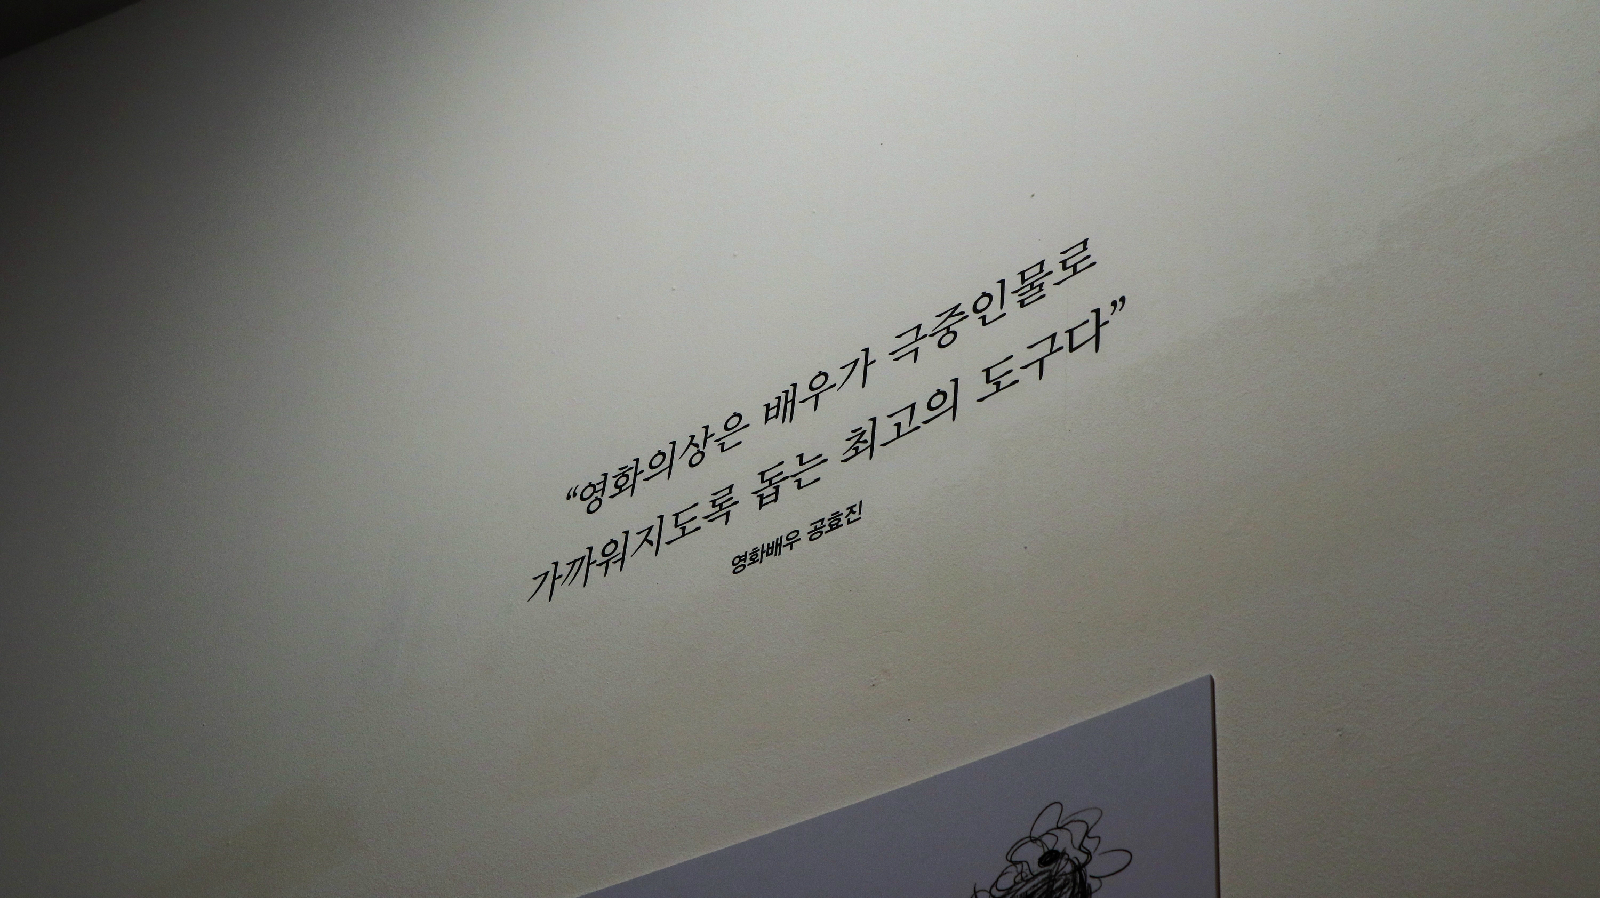 “영화의상은 배우가 극중인물로
가까워지도록 돕는 최고의 도구다”
영화배우 공효진